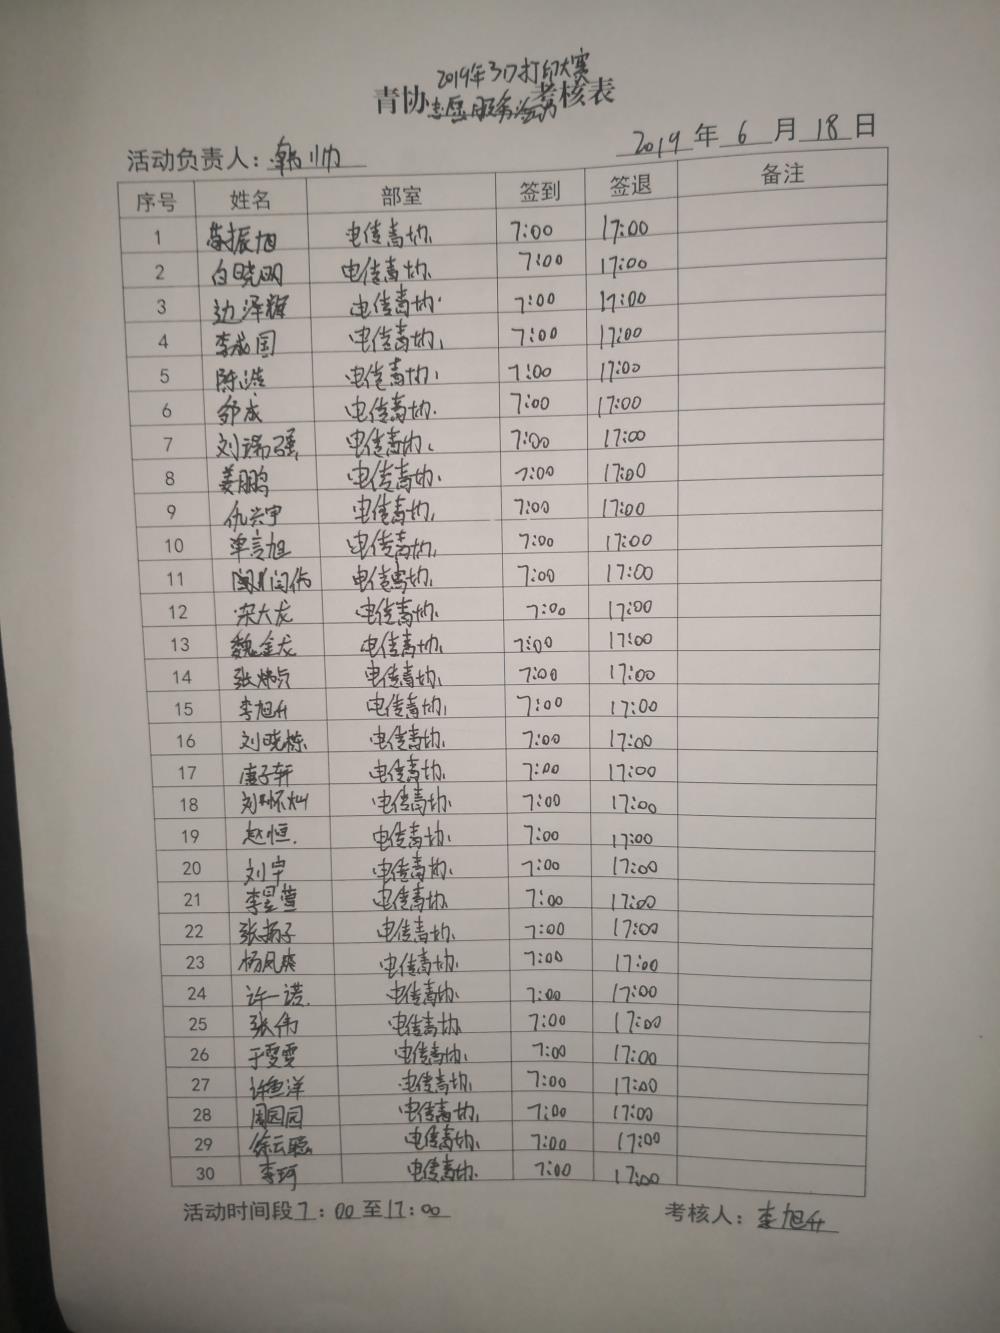 2019年3D打印大赛
青协志愿服务活动考核表
活动负责人：韩帅 2019年6月18日
序号 姓名 部室 签到 签退 备注
1 振旭 电传青协 7:00 17:00
2 白晓明 电传青协 7:00 17:00
3 边泽辉 电传青协 7:00 17:00
4 李成国 电传青协 7:00 17:00
5 陈浩 电传青协 7:00 17:00
6 邹成 电传青协 7:00 17:00
7 刘瑞强 电传青协 7:00 17:00
8 姜鹏 电传青协 7:00 17:00
9 仇兴宇 电传青协 7:00 17:00
10 单言旭 电传青协 7:00 17:00
11 电传青协 7:00 17:00
12 宋大龙 电传青协 7:00 17:00
13 魏金龙 电传青协 7:00 17:00
14 张炳 电传青协 7:00 17:00
15 李旭升 电传青协 7:00 17:00
16 刘晓栋 电传青协 7:00 17:00
17 唐子轩 电传青协 7:00 17:00
18 刘怀灿 电传青协 7:00 17:00
19 赵恒 电传青协 7:00 17:00
20 刘宇 电传青协 7:00 17:00
21 李昱萱 电传青协 7:00 17:00
22 张扬子 电传青协 7:00 17:00
23 杨凤爽 电传青协 7:00 17:00
24 许一诺 电传青协 7:00 17:00
25 张伟 电传青协 7:00 17:00
26 于雯雯 电传青协 7:00 17:00
27 许鱼洋 电传青协 7:00 17:00
28 周园园 电传青协 7:00 17:00
29 徐云聪 电传青协 7:00 17:00
30 李珂 电传青协 7:00 17:00
活动时间段7:00至17:00 考核人：李旭升